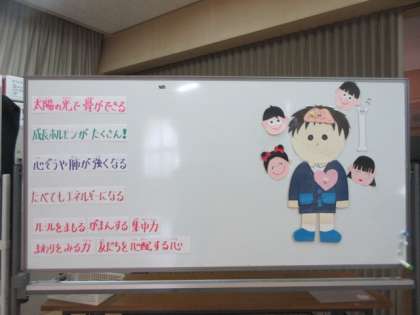 太陽の光で骨ができる
成長ホルモンが たくさん!
心ぞうや肺が強くなる
たべてもエネルギーになる
ルールをまもる がまんする 集中力
まわりをみる力 友だちを心配する心